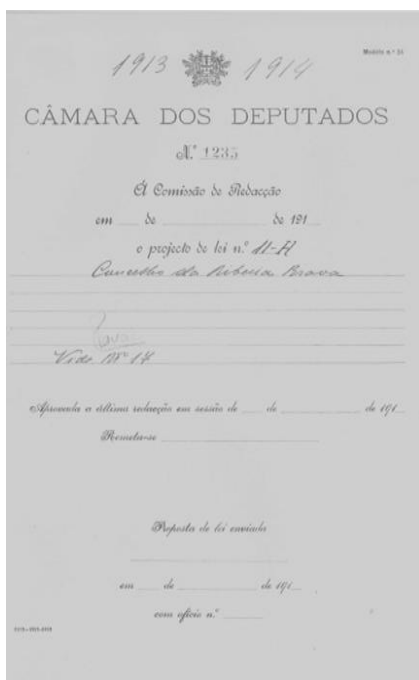 1913 1914
Modelo n.º
CÂMARA DOS DEPUTADOS
N.º 1235
Á Comissão de Redacção
em de de 191
o projecto de lei n.º 11-H
Concelho da Ribeira Brava
Vide Nº 17
Aprovada a última redacção em sessão de de de 191
Remeta-se
Proposta de lei enviada
em de de 191
com ofício n.º